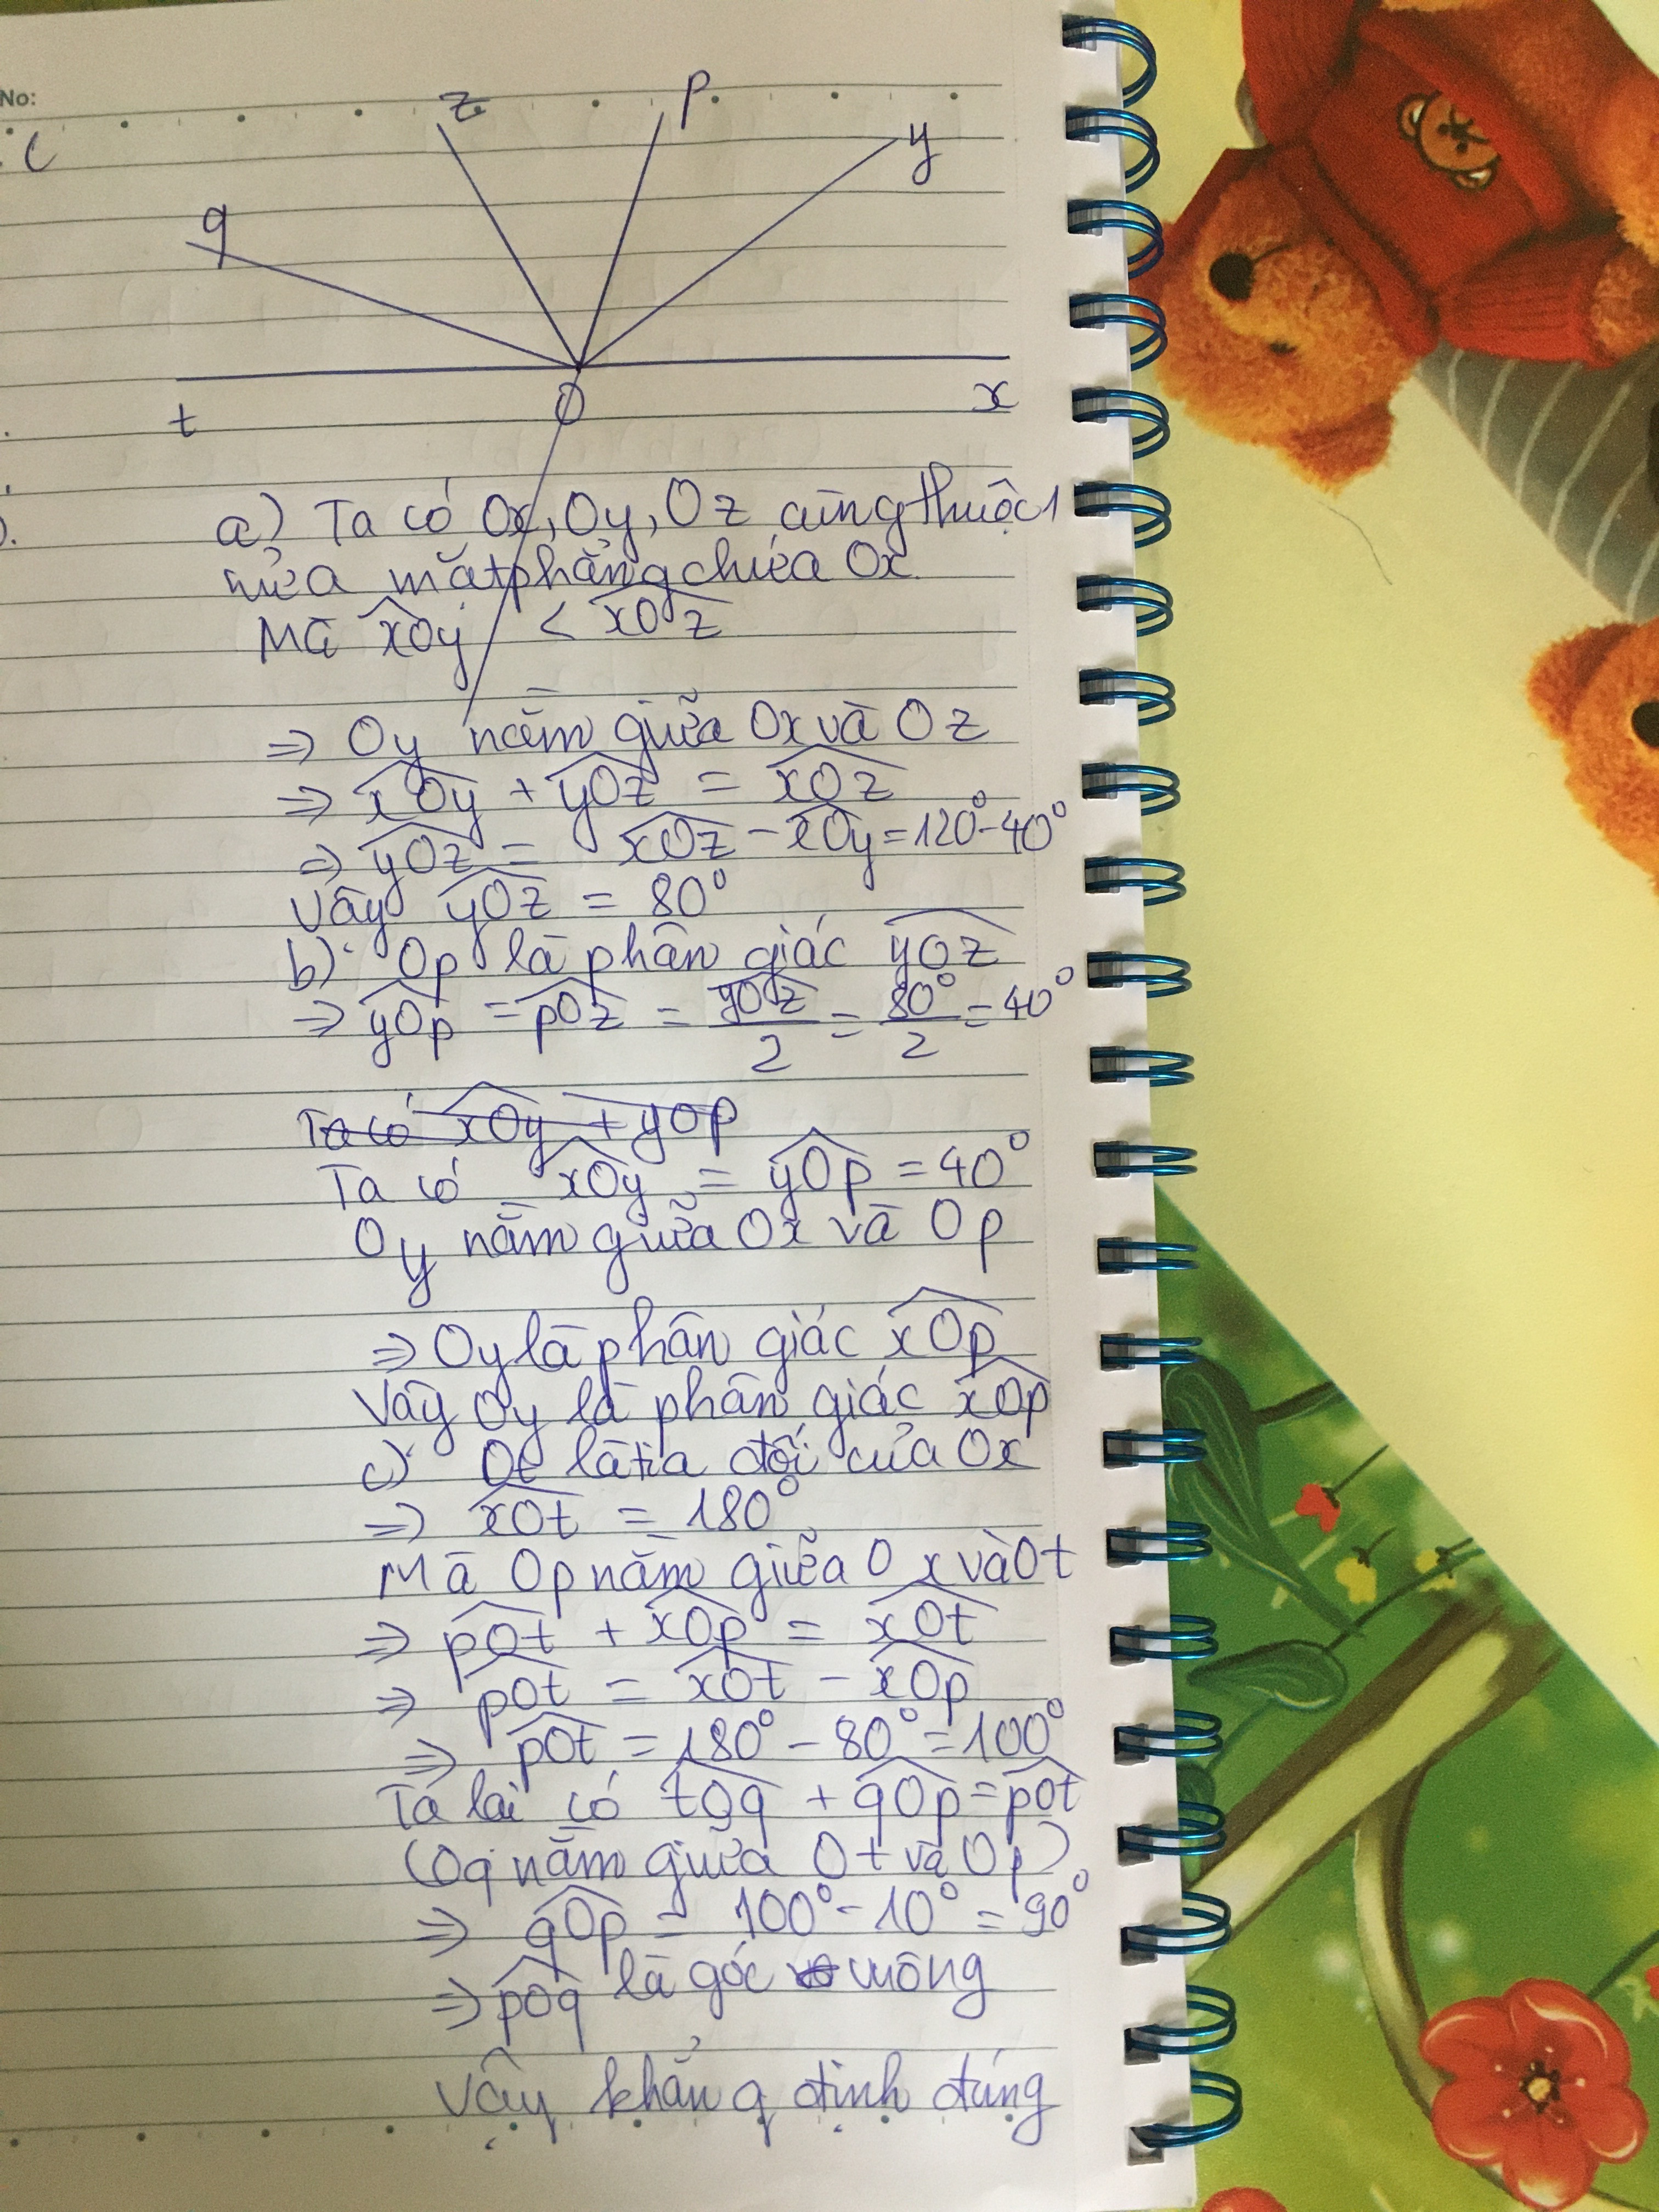 No:
z
p
y
q
t
O
x
a) Ta có Ox, Oy, Oz cùng thuộc 1
nửa mặt phẳng chứa Ox
Mà xOy < xOz
=> Oy nằm giữa Ox và Oz
=> xOy + yOz = xOz
=> yOz = xOz - xOy = 120° - 40°
Vậy yOz = 80°
b) Op là phân giác yOz
=> yOp = pOz = yOz/2 = 80°/2 = 40°
Ta có xOy + yOp
Ta có xOy = yOp = 40°
Oy nằm giữa Ox và Op
=> Oy là phân giác xOp
Vậy Oy là phân giác xOp
c) Ot là tia đối của Ox
=> xOt = 180°
Mà Op nằm giữa Ox và Ot
=> pOt + xOp = xOt
=> pOt = xOt - xOp
=> pOt = 180° - 80° = 100°
Ta lại có tOq + qOp = pOt
(Oq nằm giữa Ot và Op)
=> qOp = 100° - 10° = 90°
=> pOq là góc vuông
Vậy khẳng định đúng